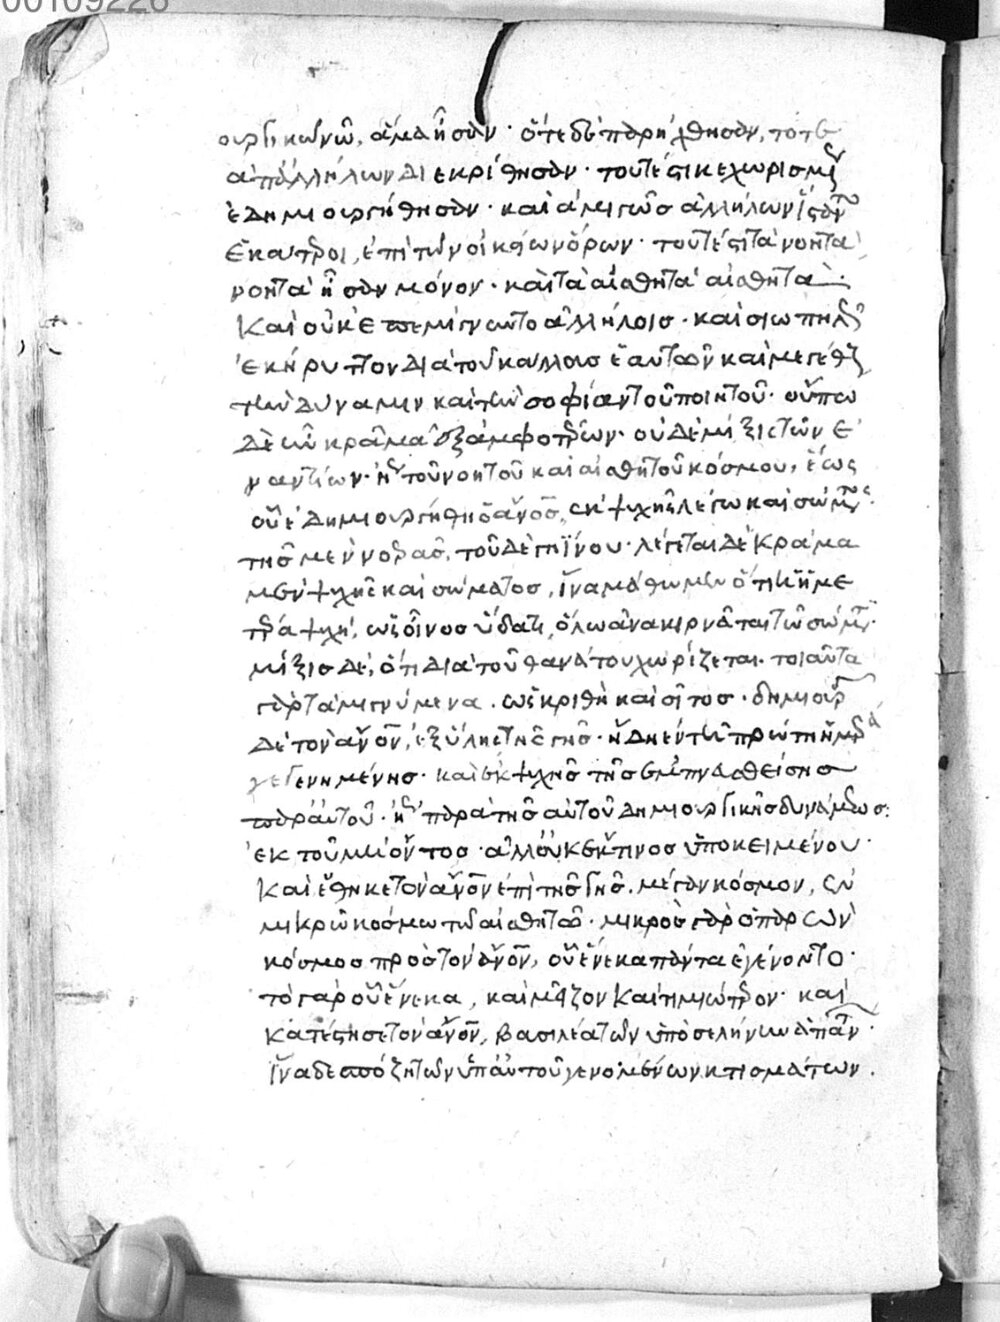 00109226
ουργικῶ νῷ, ἅμα ἦσαν · ὅτε δὲ παρήχθησαν, τότε
ἀπ' ἀλλήλων διεκρίθησαν · τουτέστι κεχωρισμ
ἐδημιουργήθησαν · καὶ ἀμιγῶς ἀλλήλων ἵσταν
ἑκάτεροι, ἐπὶ τῶν οἰκείων ὅρων · τουτέστι τὰ νοητὰ
νοητὰ ἦσαν μόνον · καὶ τὰ αἰσθητὰ αἰσθητά ·
καὶ οὐκ ἐπεμίγνυντο ἀλλήλοις · καὶ σιωπηλῶς
ἐκήρυττον διὰ τοῦ κάλλους ἑαυτῶν καὶ μεγέθους
τὴν δύναμιν καὶ τὴν σοφίαν τοῦ ποιητοῦ · οὔπω
δὲ ἦν κρᾶμα ἐξ ἀμφοτέρων · οὐδὲ μίξις τῶν ἐ
ναντίων · ἤγουν τοῦ νοητοῦ καὶ αἰσθητοῦ κόσμου, ἕως
οὗ ἐδημιουργήθη ὁ ἄνος, ἐκ ψυχῆς λέγω καὶ σώματος ·
τῆς μὲν νοερᾶς, τοῦ δὲ γηΐνου · λέγεται δὲ κρᾶμα
μὲν ψυχῆς καὶ σώματος, ἵνα μάθωμεν ὅτι ἡ ἡμε
τέρα ψυχή, ὡς οἶνος ὕδατι, ὅλω ἀνακιρνᾶται τῶ σώματι ·
μίξις δέ, ὅτι διὰ τοῦ θανάτου χωρίζεται · τοιαῦτα
γὰρ τὰ μιγνύμενα · ὡς κριθὴ καὶ σῖτος · δημιουρ
δὲ τὸν ἄνον, ἐξ ὕλης τῆς γῆς · ἤδη ἐν τῆ πρώτη ἡμέρα
γεγενημένης · καὶ ἐκ ψυχῆς τῆς ἐμπνευθείσης
παρ' αὐτοῦ · ἤγουν παρὰ τῆς αὐτοῦ δημιουργικῆς δυνάμεως ·
ἐκ τοῦ μὴ ὄντος · ἀλλ' οὐκ ἔκ τινος ὑποκειμένου ·
καὶ ἔθηκε τὸν ἄνον ἐπὶ τῆς γῆς · μέγαν κόσμον, ἐν
μικρῶ κόσμω τῶ αἰσθητῶ · μικρὸς γὰρ ὁ παρὼν
κόσμος πρὸς τὸν ἄνον, οὗ ἕνεκα πάντα ἐγένοντο ·
τὸ γὰρ οὗ ἕνεκα, καὶ μεῖζον καὶ τιμιώτερον · καὶ
κατέστησε τὸν ἄνον, βασιλέα τῶν ὑπὸ σελήνην ἁπάντων ·
ἵνα δεσπόζη τῶν ὑπ' αὐτοῦ γενομένων κτισμάτων .